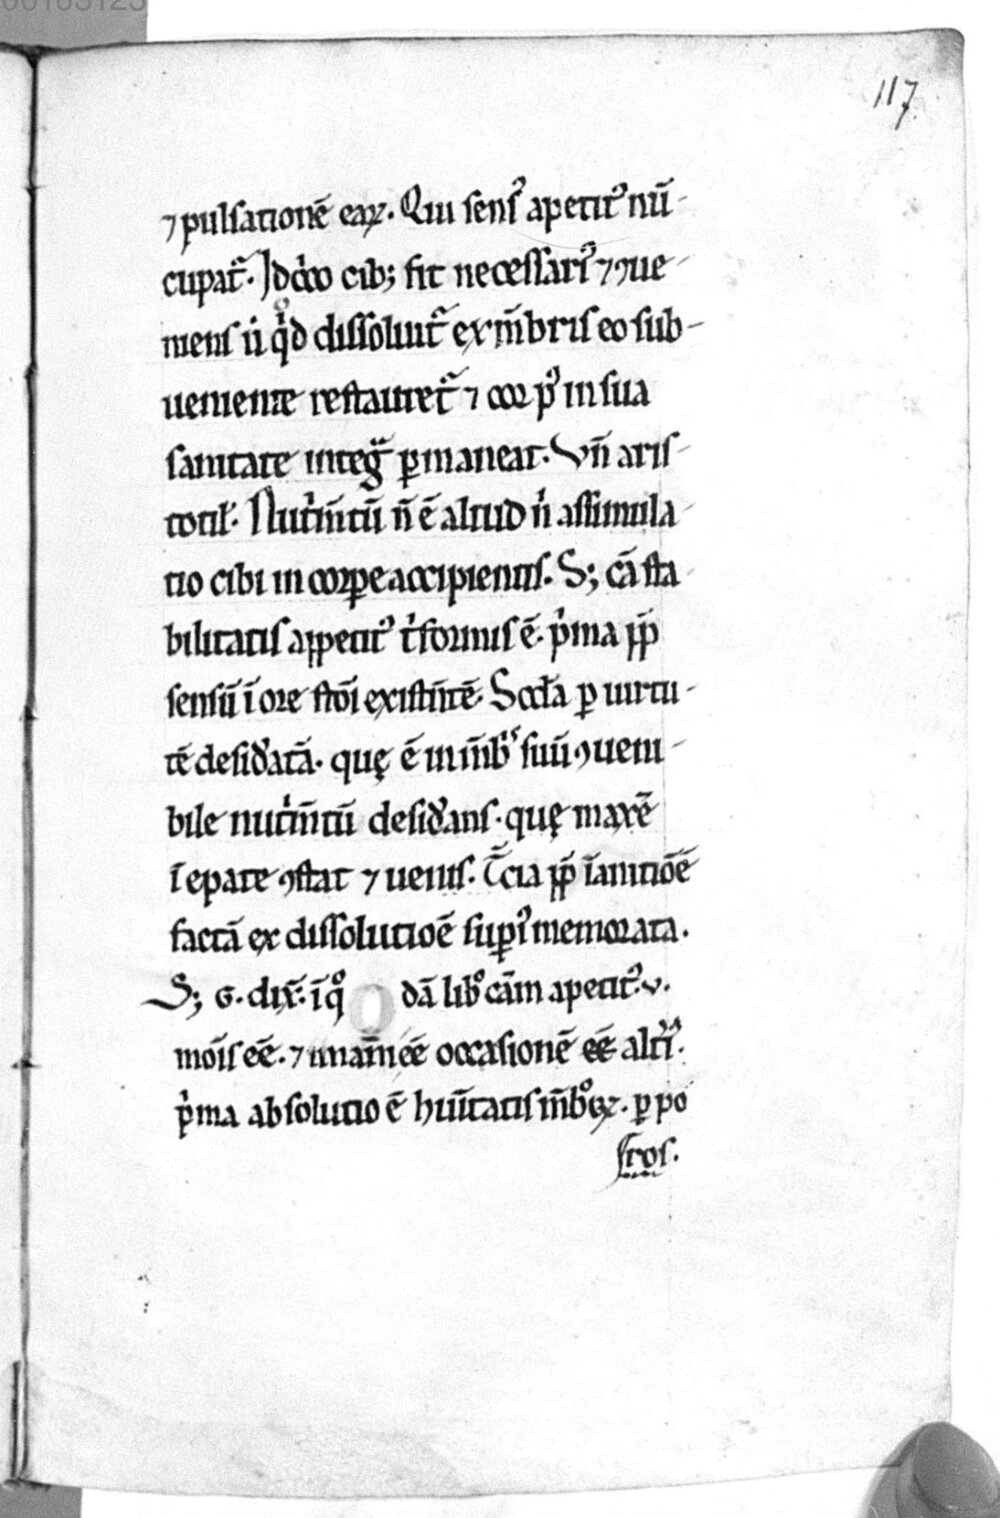 00103123
117.
⁊ pulsationē eaꝝ. Qui sensꝰ apetitꝰ nū-
cupat᷑. Idc̓o cibꝫ fit necessariꝰ ⁊ ꝯue-
niens ut qͥd dissoluit᷑ ex m̄bris eo sub-
ueniente restauret᷑ ⁊ corpꝰ in sua
sanitate integ̃ ꝑmaneat. Vn̄ aris-
totil̓. Nut̓m̄tū n̄ ē aliud n̓ assimila-
tio cibi in corꝑe accipientis. Sꝫ cā sta-
bilitatis appetitꝰ t̓formis ē. p̓ma ꝓp̄
sensū ī ore stōi existn̄tē. Scd̄a ꝑ uirtu-
tē desid̓atā. quę ē in m̄bͥs suū ꝯueni-
bile nut̓m̄tū desid̓ans. quę maxē
ī epate ꝯstat ⁊ uenis. T̄cia ꝓp̄ īanitiōē
factā ex dissolutiōe supͥꝰ memorata.
Sꝫ G. dix̄. ī qͦdā libͦ cām apetitꝰ. v.
mōis eē. ⁊ unam̄ eē occasionē eē alt̓iꝰ.
p̓ma absolutio ē hum̄tatis m̄bͦꝝ. ꝑ po
ros.